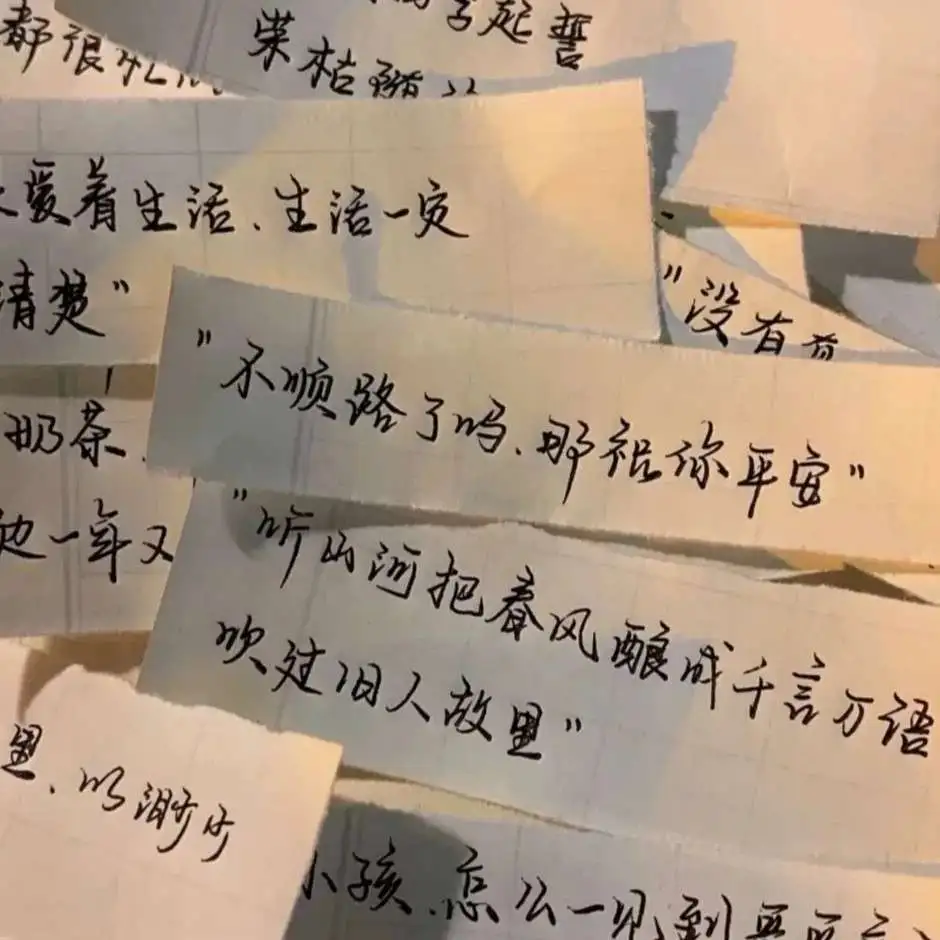 都很忙
起誓
荣枯
爱着生活、生活一定
清楚"
"没有
"不顺路了吗、那祝你平安"
奶茶、
边一年又
"听山河把春风酿成千言万语
吹过旧人故里"
里、以渺
小孩、怎么一见到